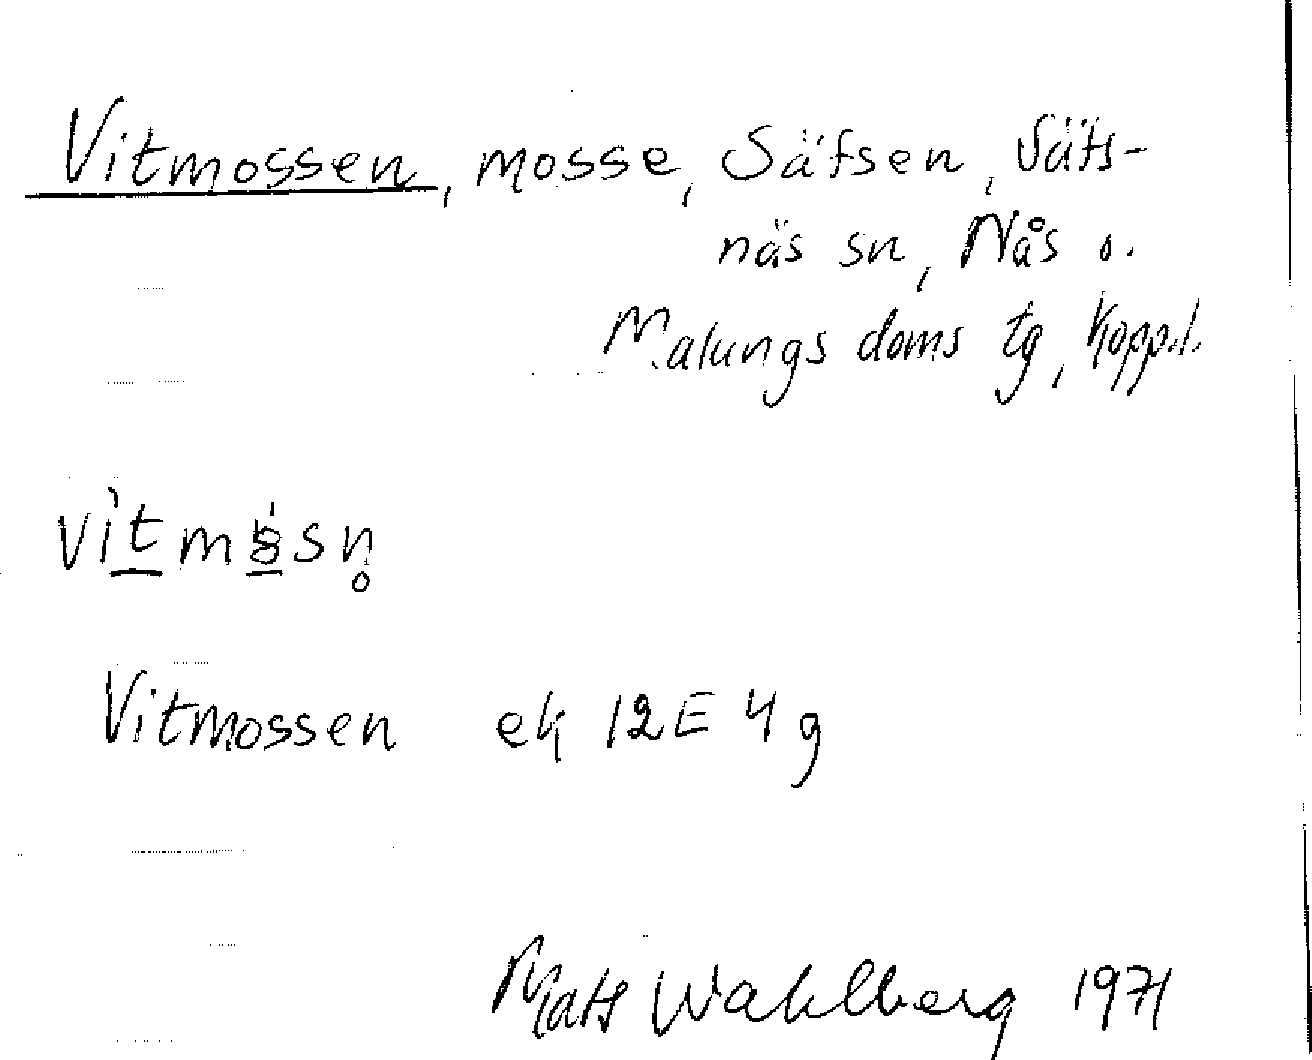 Vitmossen, mosse, Säfsen, Säfs-
näs sn, Nås o.
Malungs doms tg, Kopp.l.
Vitmossen ek 12E 4g
Mats Wahlberg 1971